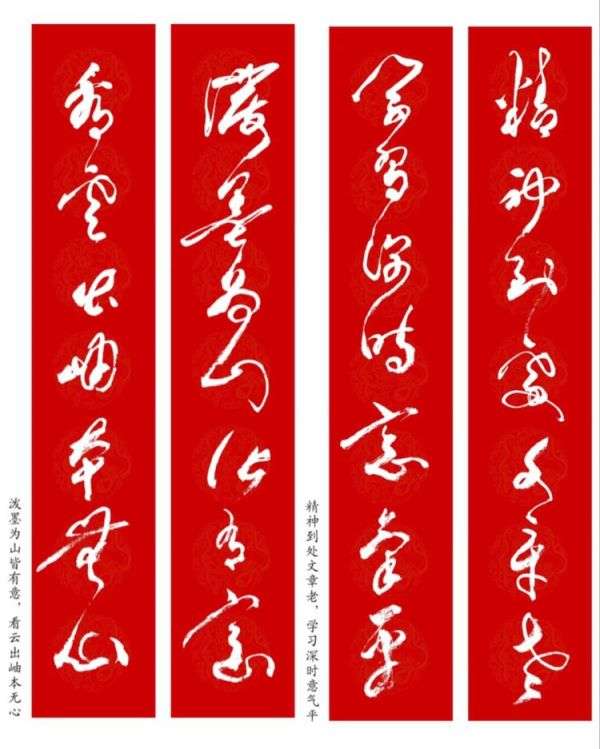 精神到處文章老
學習深時意氣平
精神到处文章老，学习深时意气平
潑墨為山皆有意
看雲出岫本無心
泼墨为山皆有意，看云出岫本无心